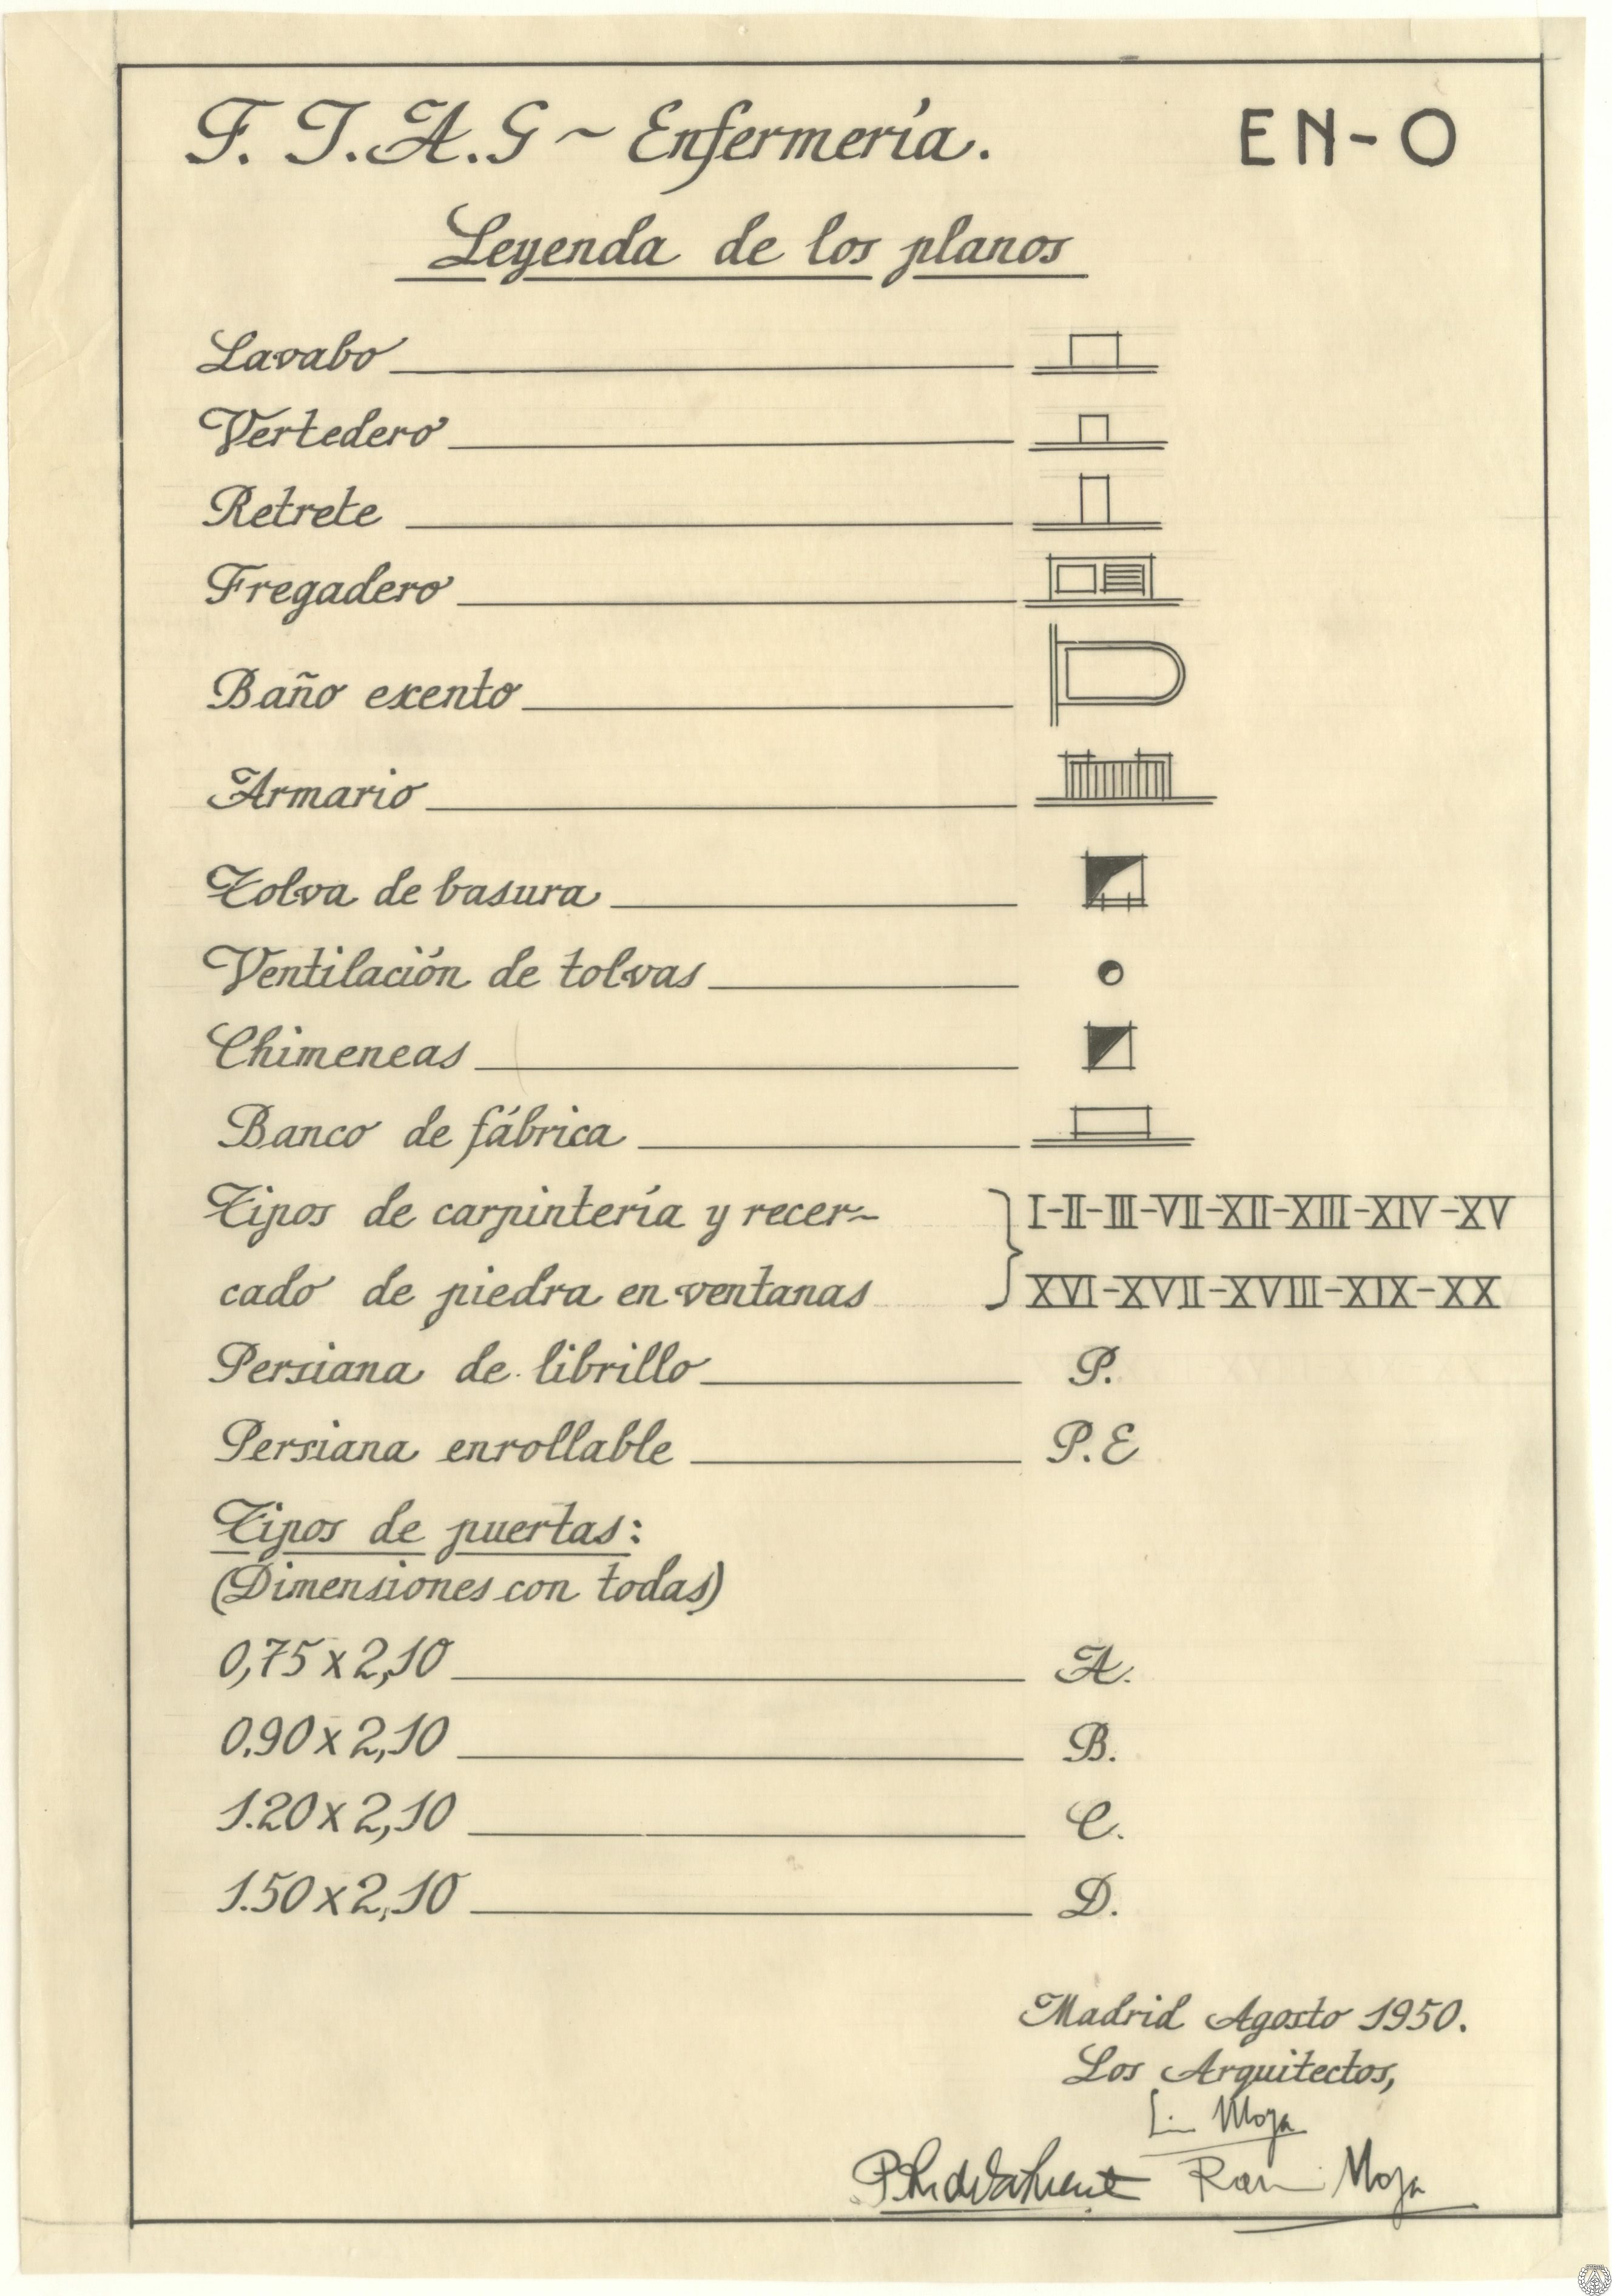 F. I. A. G ~ Enfermería.
EN-O
Leyenda de los planos
Lavabo
Vertedero
Retrete
Fregadero
Baño exento
Armario
Tolva de basura
Ventilación de tolvas
Chimeneas
Banco de fábrica
Tipos de carpintería y recer- I-II-III-VII-XII-XIII-XIV-XV
cado de piedra en ventanas XVI-XVII-XVIII-XIX-XX
Persiana de librillo P.
Persiana enrollable P.E
Tipos de puertas:
(Dimensiones con todas)
0,75 x 2,10 A.
0.90 x 2,10 B.
1.20 x 2,10 C.
1.50 x 2,10 D.
Madrid Agosto 1950.
Los Arquitectos,
Moya
Moya